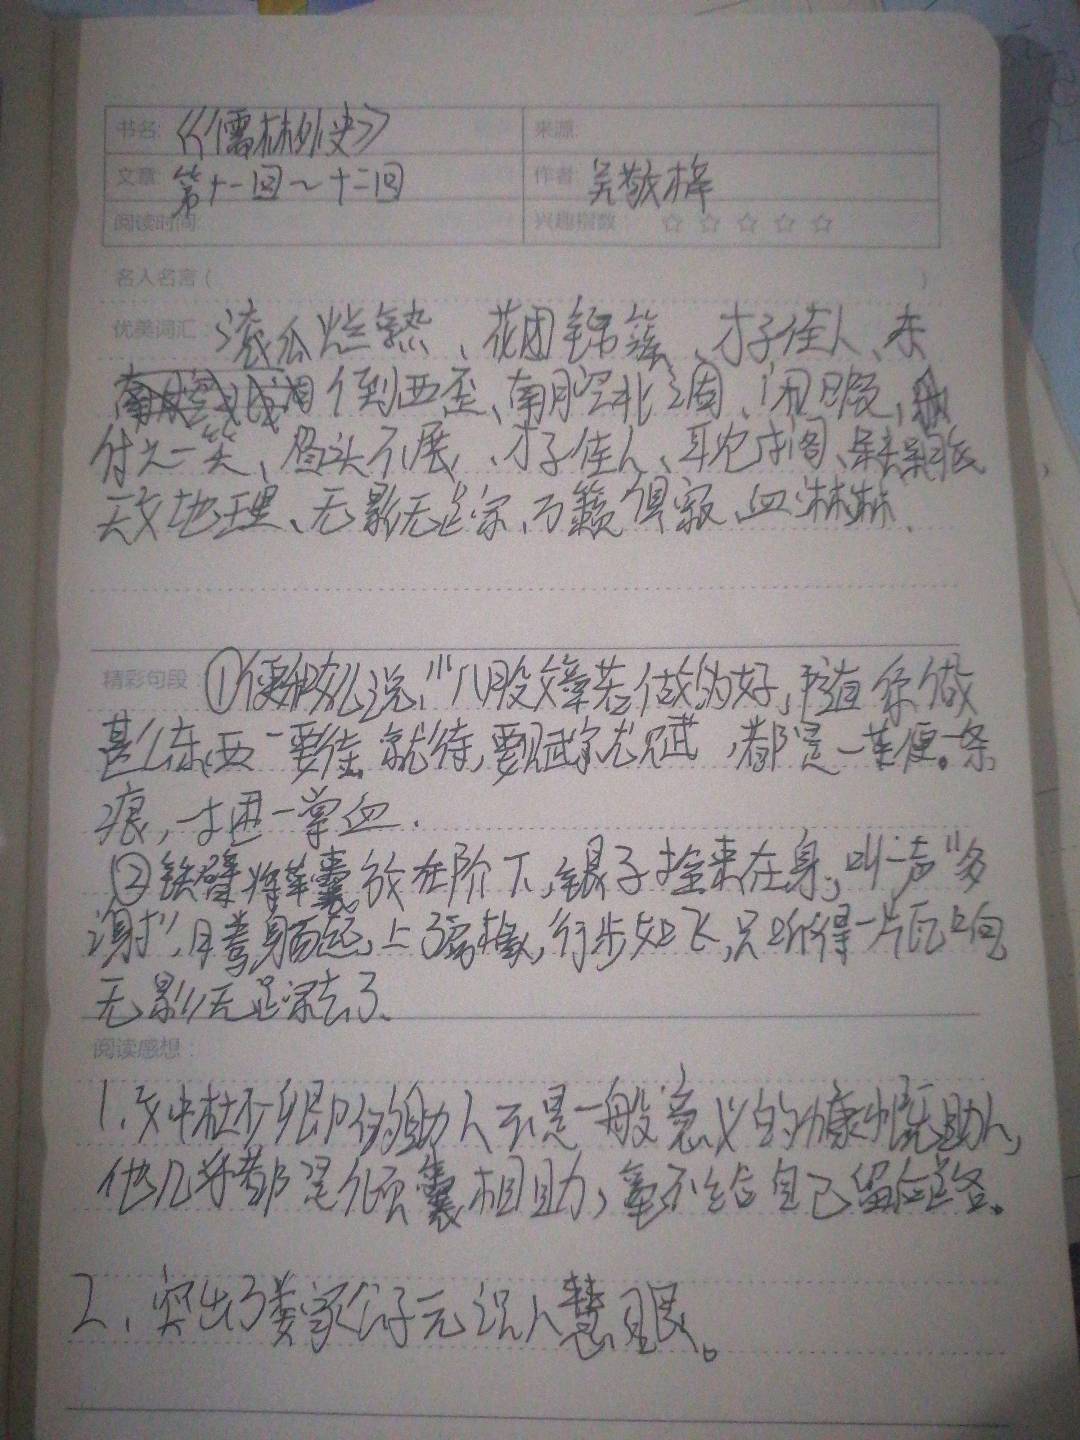 书名: 《儒林外史》 来源:
文章: 第十一回~十二回 作者: 吴敬梓
阅读时间: 兴趣指数: ☆ ☆ ☆ ☆ ☆
名人名言 ( )
优美词汇: 滚瓜烂熟、花团锦簇、才子佳人、东
倒西歪、南腔北调、闲暇、
付之一笑、眉头不展、才子佳人、
天文地理、无影无踪、万籁俱寂、血淋淋、
精彩句段: ①便教儿说,"八股文章若做的好,随你做
甚么东西 要诗就诗,要赋就赋,都是一鞭一条
痕,一掴一掌血.
②铁臂将革囊放在阶下,银子拴束在身,叫一声"多
谢",腾身而起,上了房檐,行步如飞,只听得一片瓦响
无影无踪去了、
阅读感想:
1、文中杜少卿的助人不是一般意义的慷慨助人,
他几乎都是倾囊相助,毫不给自己留后路。
2、突出了娄家公子无识人慧眼。